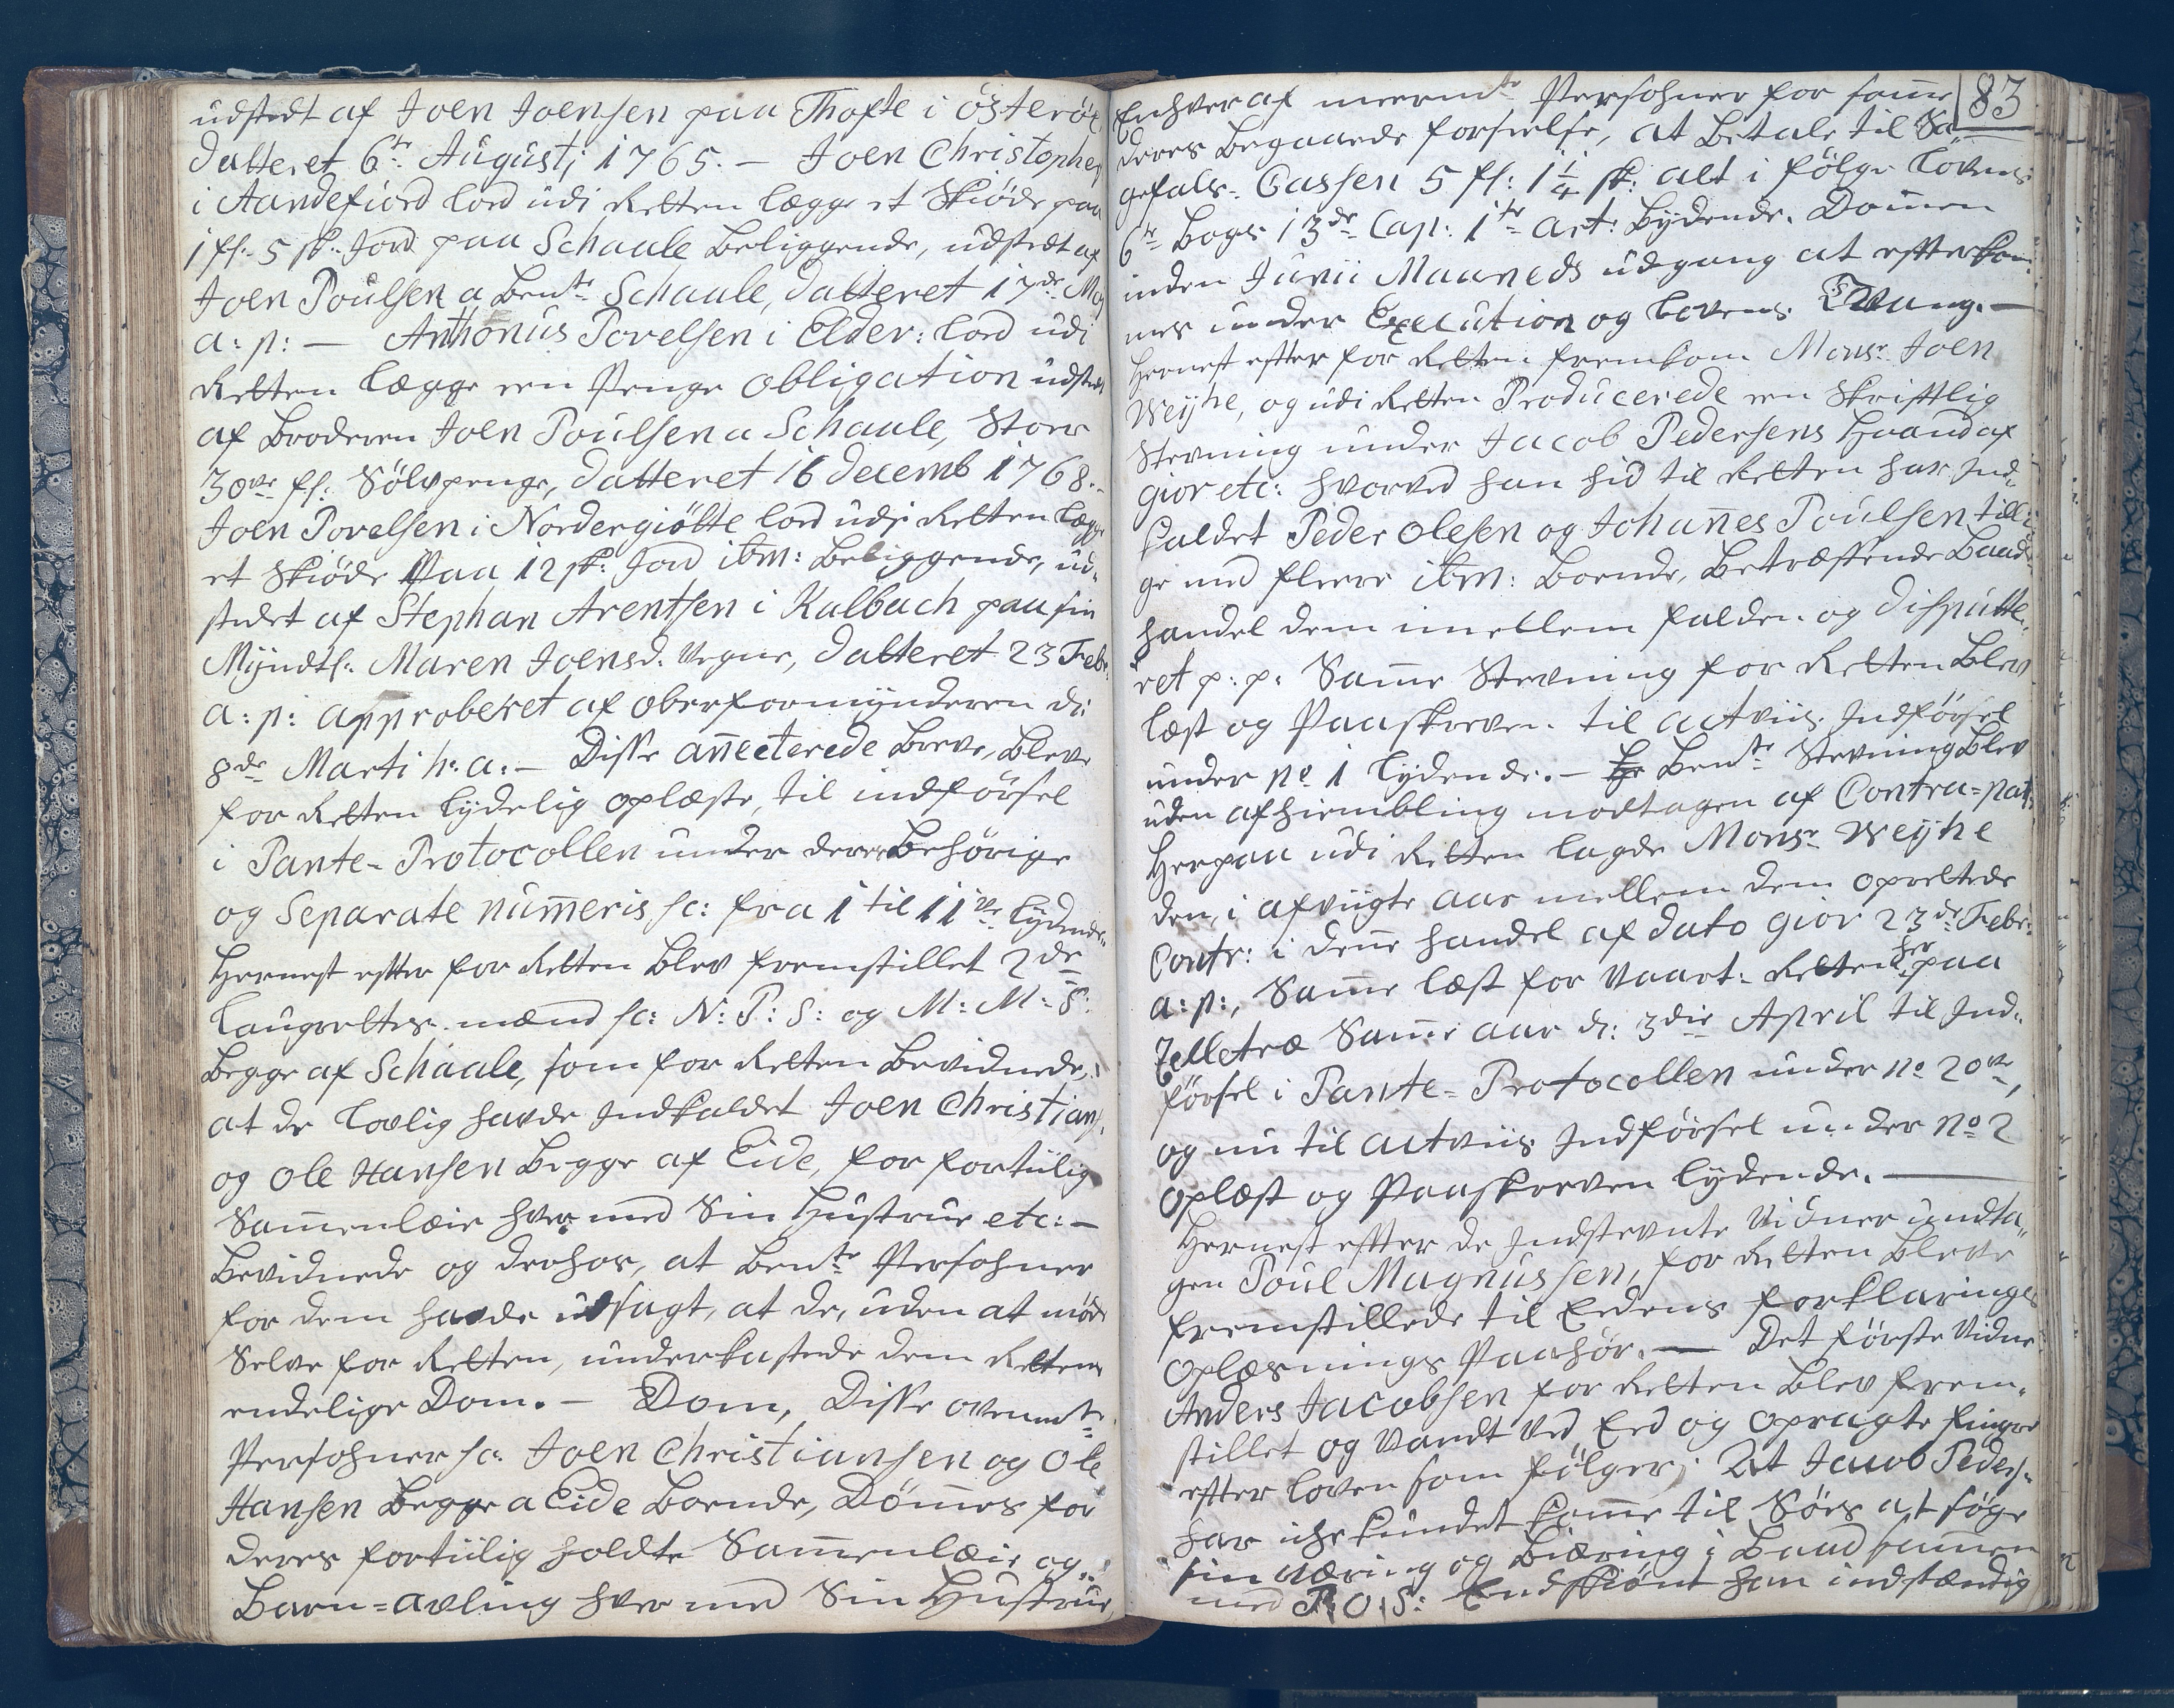 udstedt af Joen Joensen paa Thofte i österöe
datteret 6te Augustj 1765. – Joen Christophers
i Aandefiord lod udi Retten lægge et Skiöde paa
1 fl: 5 sk: Jord paa Schaale beliggende, udstedt af
Joen Poulsen a bente Schaale, datteret 17de Maj
a: p: – Anthonus Povelsen i Elder: lod udi
Retten lægge een Penge obligation udsted
af Broderen Joen Poulsen a Schaale, Stor
30ve fl: Sölvpenge, datteret 16 decemb 1768.-
Joen Povelsen i Nordergiötte lod udj Retten lægge
et Skiöde Paa 12 sk: Jord ibm: beliggende, ud-
stedet af Stephan Arentsen i Kalbach paa sin
Myndtl: Maren Joensd. Vegne, datteret 23 Febr:
a: p: approberet af oberformynderen d:
8de Marti h: a: – Disse annecterede breve, bleve
for Retten lydelig oplæste, til indförsel
i Pante-Protocollen under deres behörige
og Separate numeris sc: fra 1 til 11ve lydende.
Hernest efter for Retten blev fremstillet 2de
Laugrettes-mænd sc: N: P: S: og M: M: S:
begge af Schaale, som for Retten bevidnede,
at de lovlig havde Indkaldet Joen Christians:
og Ole Hansen begge af Eide, for fortiilig
Sammenlæie hver med Sin Hustrue etc: –
bevidnede og derhos, at bente Persohner
for dem havde udsagt, at de, uden at möde
Selve for Retten, underkastede dem Rettens
endelige Dom. – Dom, Disse ovenmte
Persohner sc: Joen Christiansen og Ole
Hansen begge a Eide boende, Dömes for
deres fortiilig holdte Samenlæie og
Barn-avling hver med Sin Hustrue,
83
Enhver af meermte Persohner for samme
deres begaaede forseelse, at betale til Sa-
gefals-Cassen 5 fl: 1 1/4 sk: alt i fölge Lovens
6te Bogs 13de Cap: 1te art: bydende. Domen
inden Junii Maaneds udgang at efterkom-
mes under Execution og Lovens Tvang. –
Hernest efter for Retten fremkom Monsr Joen
Weyhe, og udi Retten Producerede een Skriftlig
Stevning under Jacob Pedersens Haand af
gior etc: hvorved han hid til Retten har Ind-
kaldet Peder Olesen og Johannes Poulsen tilli-
ge med fleere ibm: boende, betræffende Baad
handel dem imellem falden og disputte-
ret p: p: Samme Stevning for Retten blev
læst og Paaskreven til actviis Indförsel
under No 1 lydende. – bente Stevning blev
uden afhiembling modtagen af Contra-part
Herpaa udi Retten lagde Monsr Weyhe
den, i afvigte aar mellem dem oprettede
Contr: i denne handel af dato gior 23de Febr:
a: p:, Samme læst for Vaart-Retten her paa
Telletræ Samme aar d: 3die April til Ind-
försel i Pante-Protocollen under No 20ve,
og nu til actviis Indförsel under No 2
oplæst og Paaskreven lydende. –
Hernest efter de Indstevnte Vidner undta-
gen Poul Magnussen, for Retten bleve
fremstillede til Eedens forklarings
oplæsnings Paahör. – Det förste Vidne
Anders Jacobsen for Retten blev frem-
stillet og Vandt ved Eed og opragte finger
efter Loven som fölger; At Jacob Peders-
har iche kundet komme til Söes at söge
sin Næring og Biæring i Baad sammen
med P: O: S: Endskiönt han indstændig